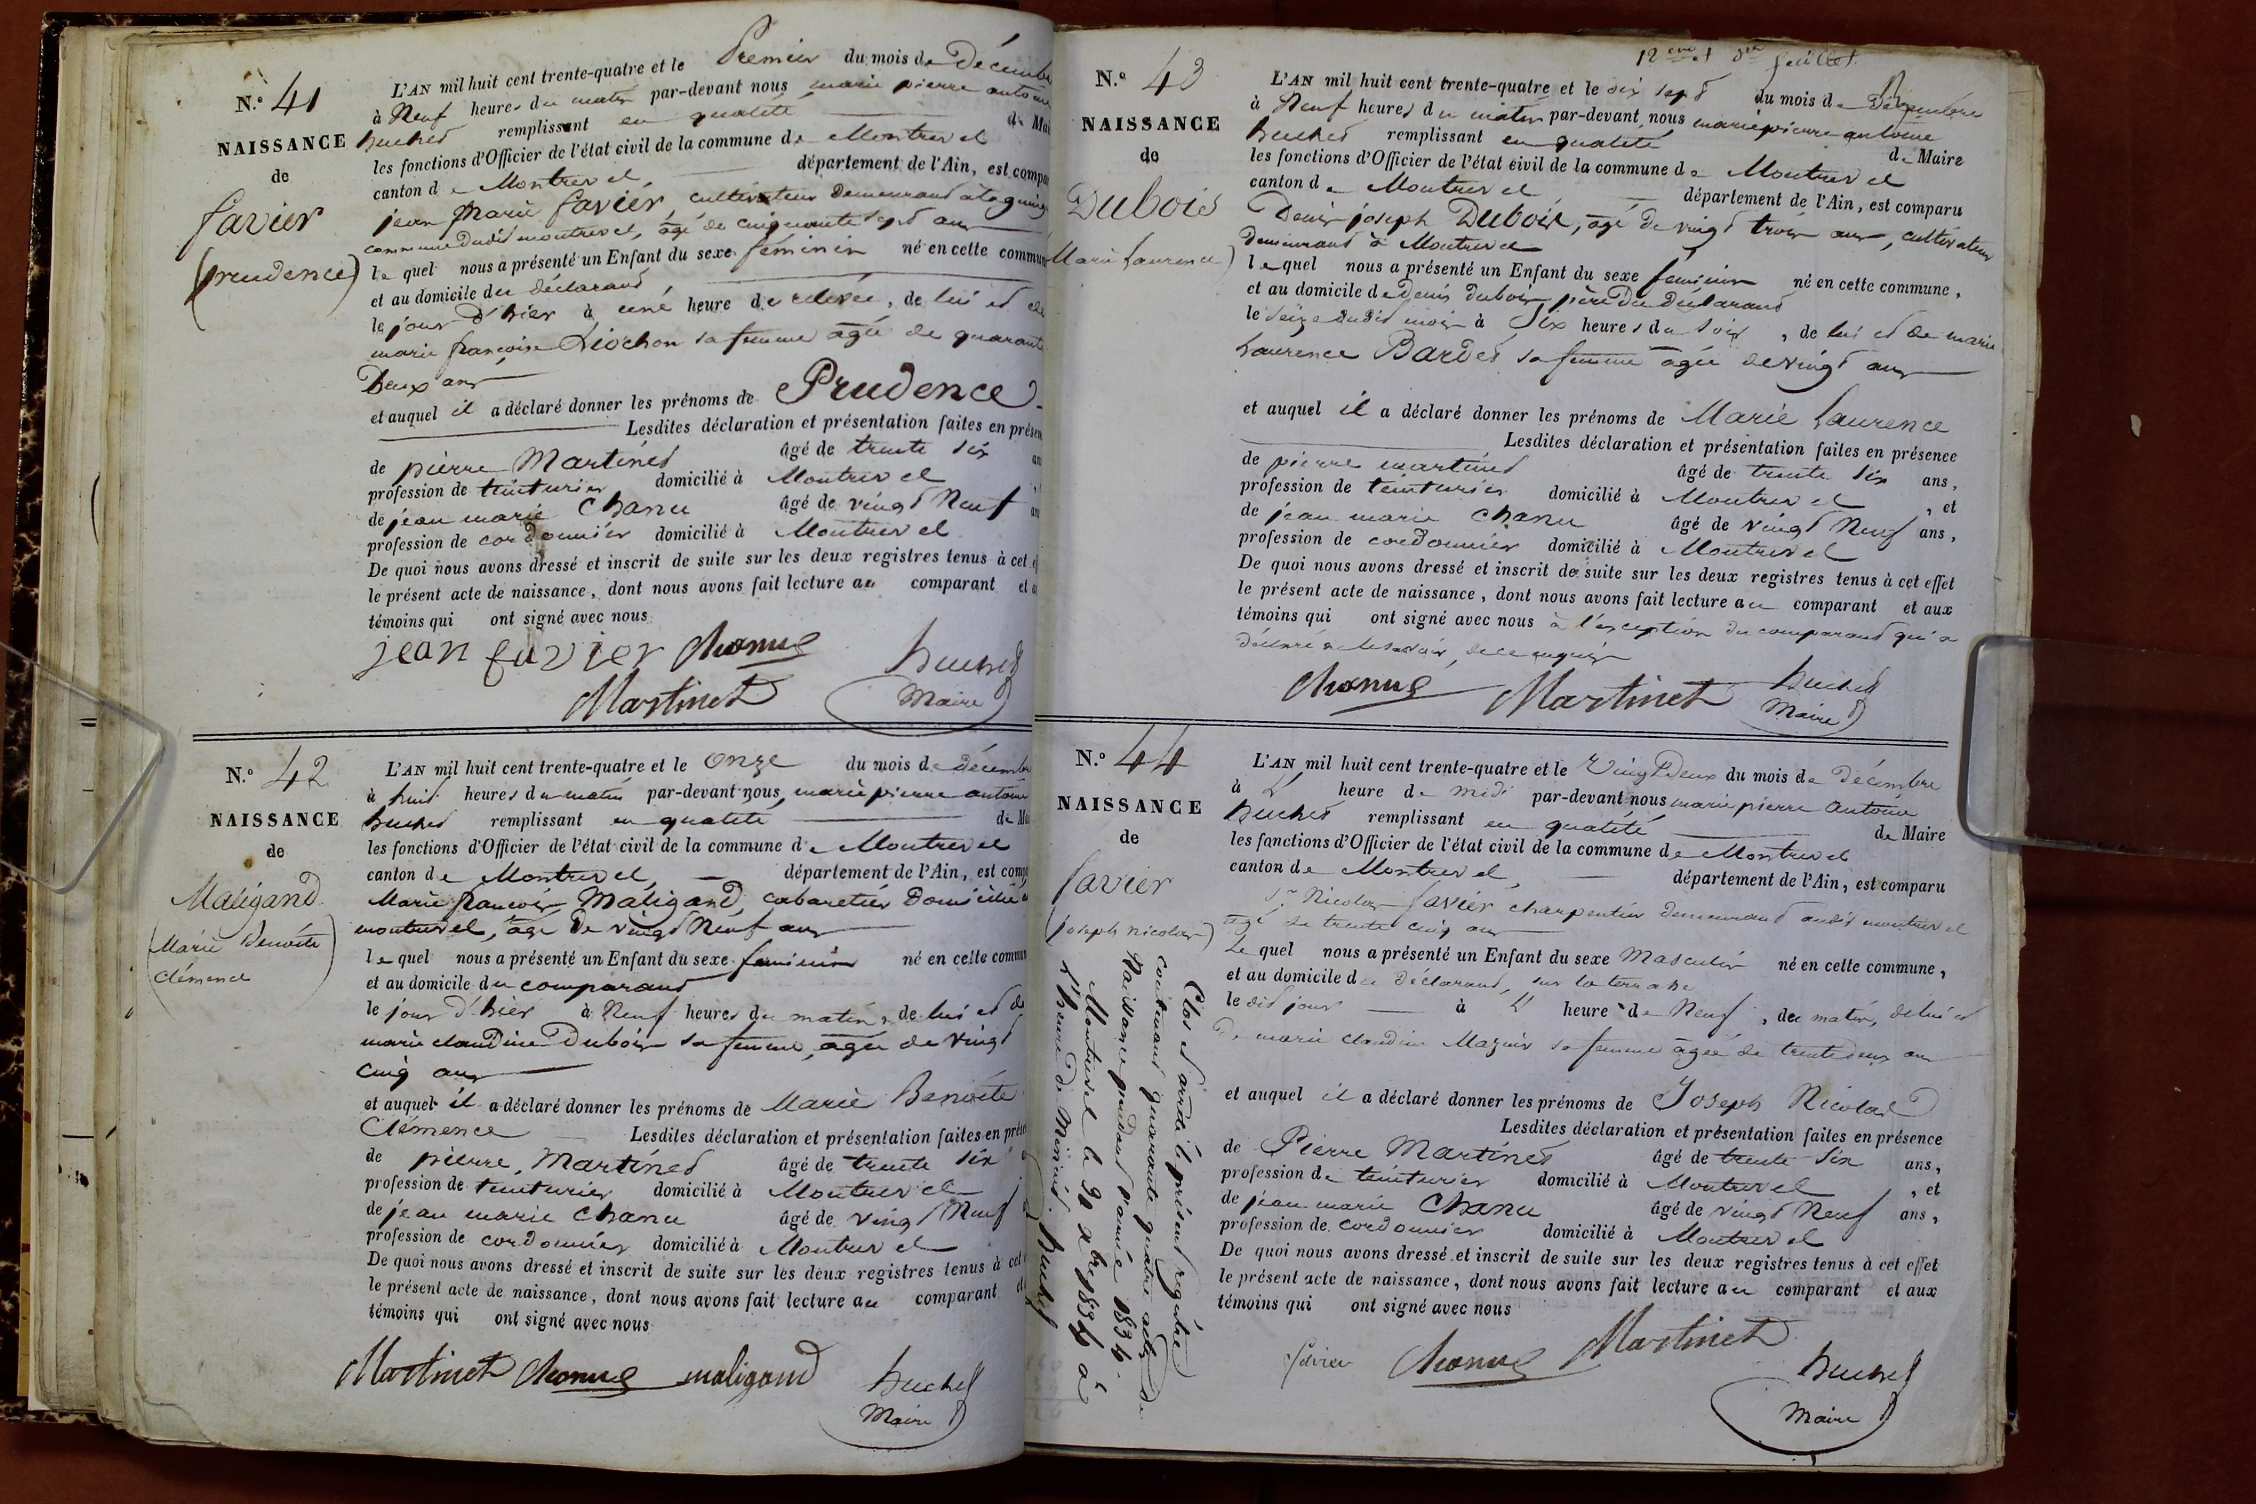 N.º 41
NAISSANCE
de
favier
(prudence)
L'AN mil huit cent trente-quatre et le Premier du mois de Décembre
à Neuf heures du matin par-devant nous marie pierre antoine
huchet remplissant en qualité de Mai
les fonctions d'Officier de l'état civil de la commune de Montrevel
canton de Montrevel département de l'Ain, est compar
jean marie favier, cultivateur demeurant
commune dudit montrevel, âgé de cinquante sept ans
lequel nous a présenté un Enfant du sexe féminin né en cette commune
et au domicile du déclarant
le jour d'hier à une heure de relevée, de lui et de
marie françoise Liochon sa femme agée de quarante
Deux ans
et auquel il a déclaré donner les prénoms de Prudence
Lesdites déclaration et présentation faites en présen
de pierre Martinet âgé de trente six an
profession de teinturier domicilié à Montrevel
de jean marie Chanu âgé de vingt Neuf an
profession de cordonnier domicilié à Montrevel
De quoi nous avons dressé et inscrit de suite sur les deux registres tenus à cet
le présent acte de naissance, dont nous avons fait lecture au comparant et a
témoins qui ont signé avec nous
jean favier Chanu huchet
Martinet Maire
N.º 42
NAISSANCE
de
Maligand
(Marie Benoite
Clémence)
L'AN mil huit cent trente-quatre et le onze du mois de décembre
à huit heures du matin par-devant nous, marie pierre antoine
huchet remplissant en qualité de Mai
les fonctions d'Officier de l'état civil de la commune de Montrevel
canton de Montrevel département de l'Ain, est comp
Marie françois Maligand, cabaretier Domicilié à
montrevel, âgé De vingt Neuf ans
lequel nous a présenté un Enfant du sexe feminin né en cette commun
et au domicile du comparant
le jour d'hier à Neuf heures du matin, de lui et de
marie claudine Dubois sa femme, agée de vingt
cinq ans
et auquel il a déclaré donner les prénoms de Marie Benoite
Clémence Lesdites déclaration et présentation faites en prése
de pierre Martinet âgé de trente six
profession de teinturier domicilié à Montrevel
de jean marie Chanu âgé de vingt Neuf
profession de cordonnier domicilié à Montrevel
De quoi nous avons dressé et inscrit de suite sur les deux registres tenus à cet
le présent acte de naissance, dont nous avons fait lecture au comparant
témoins qui ont signé avec nous
Martinet Chanu maligand huchet
Maire
12eme et dr feuillet
N.º 43
NAISSANCE
de
Dubois
Marie Laurence)
L'AN mil huit cent trente-quatre et le dix sept du mois de Décembre
à Neuf heures du matin par-devant nous marie pierre antoine
huchet remplissant en qualité de Maire
les fonctions d'Officier de l'état civil de la commune de Montrevel
canton de Montrevel département de l'Ain, est comparu
Denis joseph Dubois, agé de vingt trois ans, cultivateur
demeurant à Montrevel
lequel nous a présenté un Enfant du sexe feminin né en cette commune,
et au domicile de Denis dubois père Du déclarant
le seize dudit mois à Six heures du soir, de lui et de marie
Laurence Bardet sa femme agée de vingt ans
et auquel il a déclaré donner les prénoms de Marie Laurence
Lesdites déclaration et présentation faites en présence
de pierre martinet âgé de trente six ans,
profession de teinturier domicilié à Montrevel, et
de jean marie Chanu âgé de vingt Neuf ans,
profession de cordonnier domicilié à Montrevel
De quoi nous avons dressé et inscrit de suite sur les deux registres tenus à cet effet
le présent acte de naissance, dont nous avons fait lecture au comparant et aux
témoins qui ont signé avec nous à l'exception du comparant qui a
déclaré ne le savoir, de ce enquis
Chanu Martinet huchet
Maire
N.º 44
NAISSANCE
de
favier
(joseph nicolas)
L'AN mil huit cent trente-quatre et le Vingt Deux du mois de décembre
à L' heure de midi par-devant nous marie pierre antoine
huchet remplissant en qualité de Maire
les fonctions d'Officier de l'état civil de la commune de Montrevel
canton de Montrevel département de l'Ain, est comparu
Sr. Nicolas favier charpentier demeurant audit montrevel
agé de trente cinq ans
Le quel nous a présenté un Enfant du sexe Masculin né en cette commune,
et au domicile du déclarant, sur la terrasse
le dit jour à L' heure de Neuf, du matin, de lui et
De marie claudine Mazuir sa femme agée de trente deux ans
et auquel il a déclaré donner les prénoms de Joseph Nicolas
Lesdites déclaration et présentation faites en présence
de Pierre Martinet âgé de trente six ans,
profession de teinturier domicilié à Montrevel, et
de jean marie Chanu âgé de vingt Neuf ans,
profession de cordonnier domicilié à Montrevel
De quoi nous avons dressé et inscrit de suite sur les deux registres tenus à cet effet
le présent acte de naissance, dont nous avons fait lecture au comparant et aux
témoins qui ont signé avec nous
favier Chanu Martinet huchet
Maire
Clos et arrêté le présent registre
contenant quarante quatre actes de
Naissance pendant l'année 1834.
Montrevel le 30 xbre 1834 à
l'heure de Minuit. Huchet